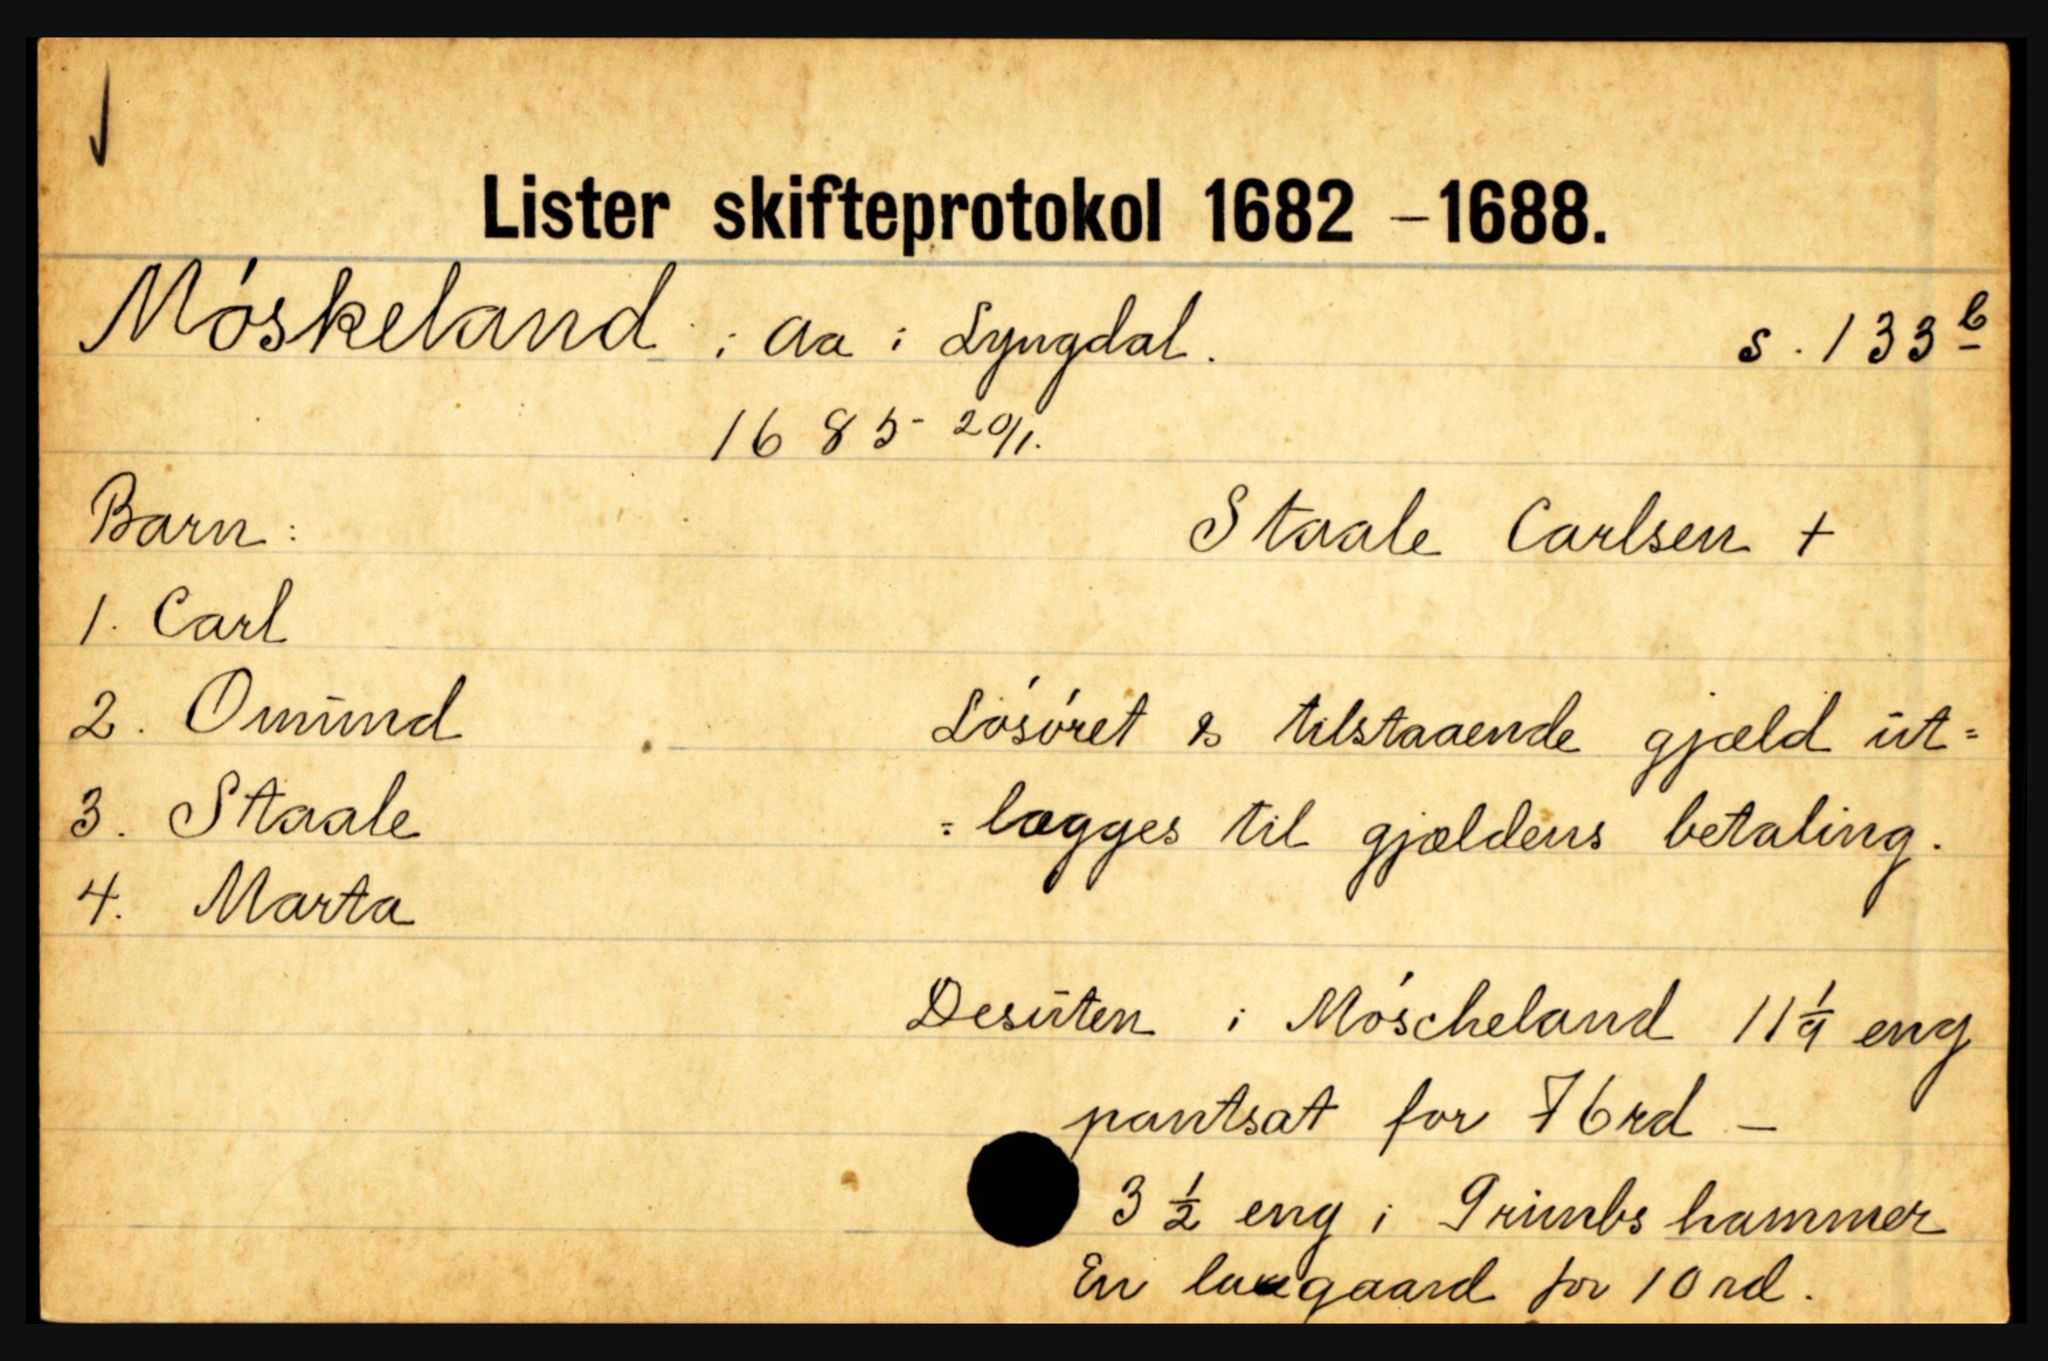 Lister skifteprotokol 1682 – 1688.
Móskeland i Aa i Lyngdal. s. 133 b
1685 - 20/1.
Barn: Staale Carlsen +
1. Carl
2. Omund
3. Staale
4. Marta
Lósóret & tilstaaende gjæld ut=
=lægges til gjældens betaling.
Desuten i Móscheland 11 1/9 eng
pantsat for 76 rd –
3 1/2 eng i Grimbs hammer
En laxgaard for 10 rd.